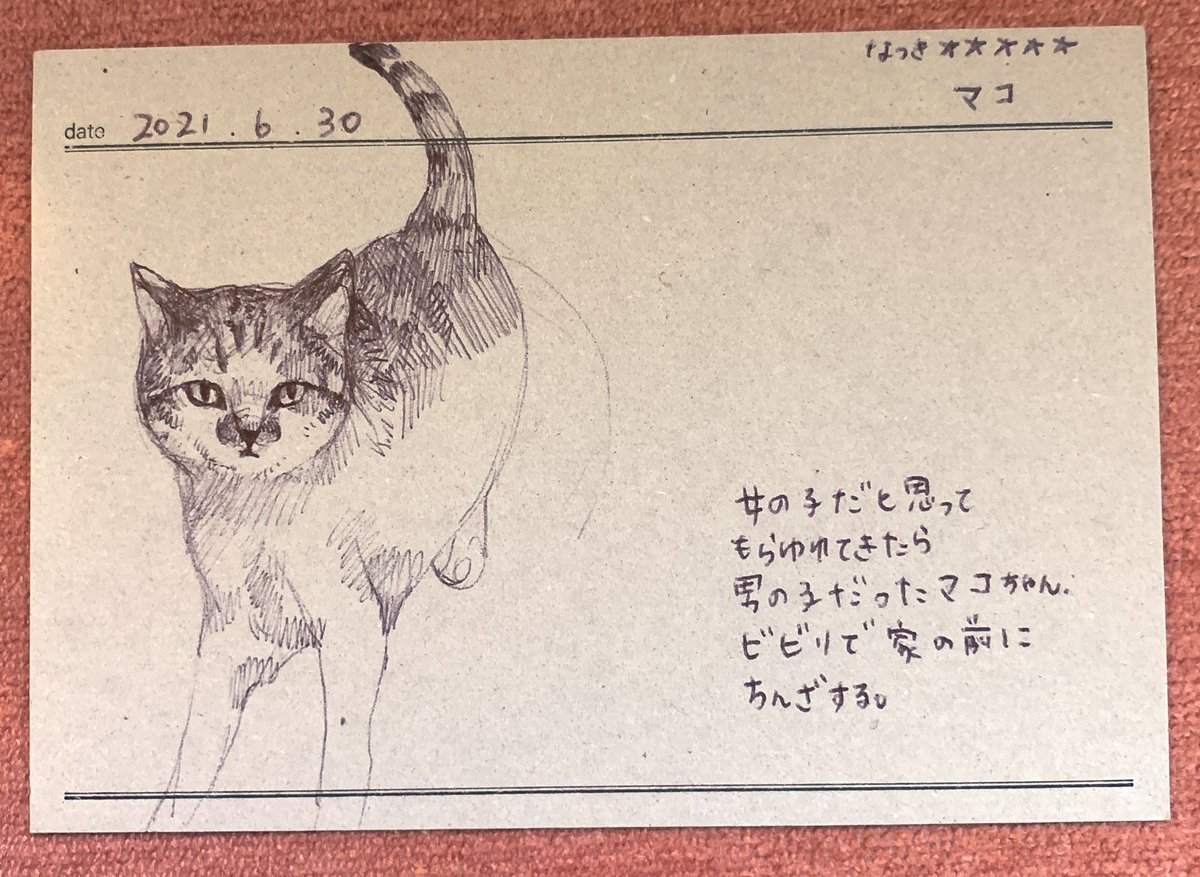 なつき★★★★★
マコ
date 2021.6.30
女の子だと思って
もらゆれてきたら
男の子だったマコちゃん.
ビビリで家の前に
ちんざする。